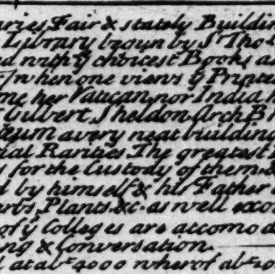 aries, Fair & stately Buildin
Library begun by Sr Tho
d with ye choicest Books a
when one views ye Printe
me her Vatican, nor India
Gilbert Sheldon Arch B
eum a very neat building
Rarities The greatest
for the Custody of them
d by himself & his Father
Plants &c as well exo
ye Colleges are accomo
ng & Conversation
at abt 4000 wherof abt